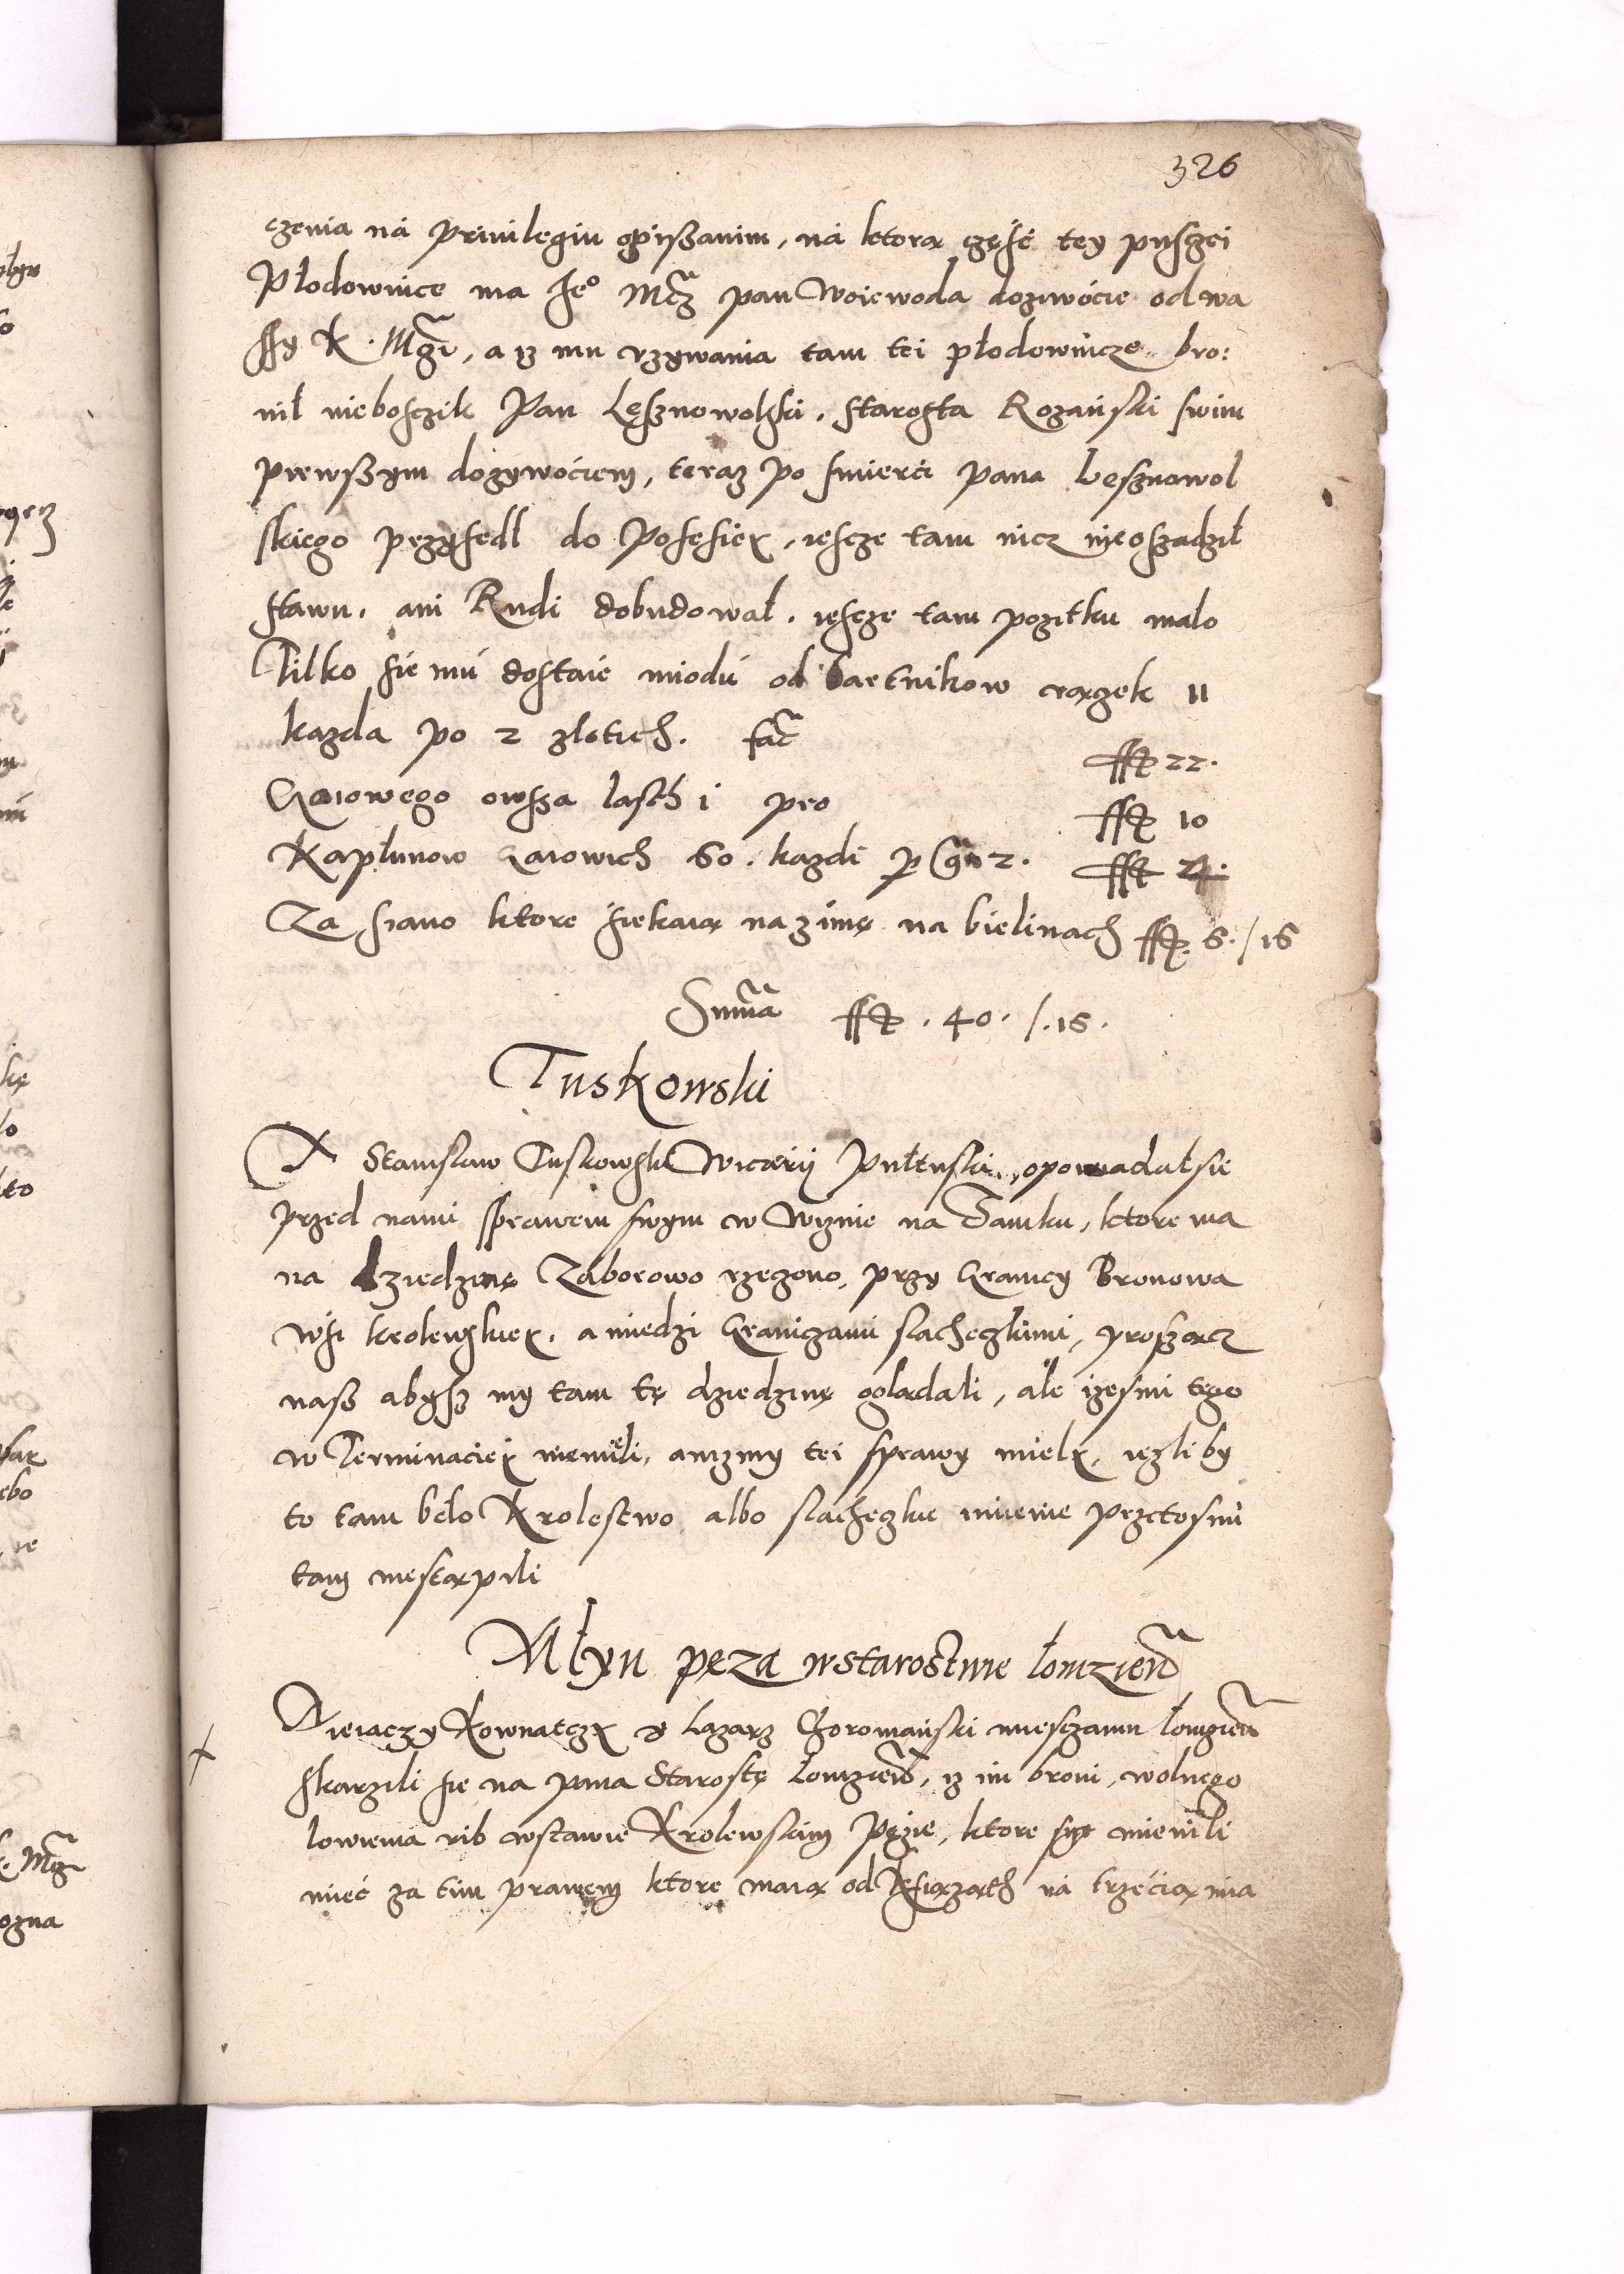 326
czenia ná priuilegiu opiszanim, ná ktorą częsć tey pusczci
Płodownice ma Je° Mcz pan Woiewoda dozywocie od wa
ssy K. Mczi, a iz mu vzywania tam tei płodownicze bro:
nił nieboszczik Pan Lesznowolski, starosta Rozański swim
pierwszym dozywociem, teraz po smierci pana Lesznowol
skiego przysedl do Possesiei, iescze tam nicz nieoszadził
stawu, ani Rudi dobudował, iescze tam pozitku malo
Tilko sie mu dostaie miodú od bartnikow rączek 11
kazda po 2 zlotich. fac̃ ff 22.
Gaiowego owsza lasth 1 pro ff 10
Kaplunow Gaiowich 60. kazdi p gr̃ 2. ff 4.
Za siano ktore siekaią na zimę na bielinach ff 6./16
Sum̃a ff. 40./.16.
Tuskowski
X Stanislaw Tuskowski Wicarij Pultuski, opowiadał sie
przed nami sprawem swym w Wiznie na Zamku, ktore ma
na dziedzinę Záborowo rzeczono, przy Granicy Bronowa
wsi krolewskiei, a miedzi Graniczami slacheczkimi, proszącz
nasz abysz my tam tę dziedzinę oglądali, ale izesmi tego
w Terminaciei niemieli, anizmy tei sprawy mieli, iezliby
to tam beło Krolestwo albo slacheczkie imienie przetosmi
tam niestąpili
Młyn pęza w starostwie łomzien̄
Wieiaczy Kownatczi y Lazarz Choromański miesczanie łomzien̄
skarzili sie na pana Starostę Lomzien̄, iz im broni, wolnego
lowienia rib w stawie Krolewskim Pęzie, ktore się mienili
mieć za tim prawem ktore maią od Ksiązath ná trzecią mia